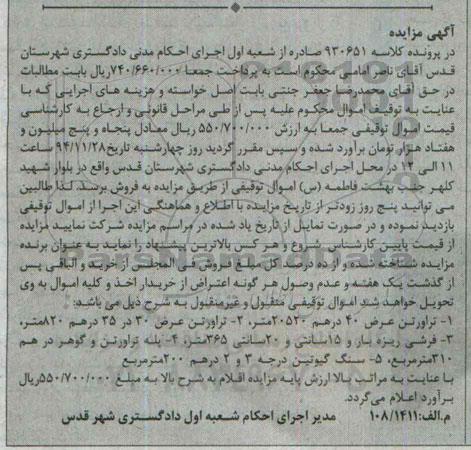 آگهی مزایده
در پرونده کلاسه ۹۳۰۶۵۱ صادره از شعبه اول اجرای احکام مدنی دادگستری شهرستان
قدس آقای ناصر امامی محکوم است به پرداخت جمعا ۷۴۰/۶۶۰/۰۰۰ریال بابت مطالبات
در حق آقای محمدرضا جعفر جنتی بابت اصل خواسته و هزینه های اجرایی که با
عنایت به توقیف اموال محکوم علیه پس از طی مراحل قانونی و ارجاع به کارشناسی
قیمت اموال توقیفی جمعا به ارزش ۵۵۰/۷۰۰/۰۰۰ ریال معادل پنجاه و پنج میلیون و
هفتاد هزار تومان برآورد شده و سپس مقرر گردید روز چهارشنبه تاریخ۹۴/۱۱/۲۸ ساعت
۱۱ الی ۱۲ در محل اجرای احکام مدنی دادگستری شهرستان قدس واقع در بلوار شهید
کلهر جنب بهشت فاطمه (س) اموال توقیفی از طریق مزایده به فروش برسد. لذا طالبین
می توانید پنج روز زودتر از تاریخ مزایده با اطلاع و هماهنگی این اجرا از اموال توقیفی
بازدید نموده و در صورت تمایل از تاریخ یاد شده در مراسم مزایده شرکت نمایید مزایده
از قیمت پایین کارشناس شروع و هر کس بالاترین پیشنهاد را نماید به عنوان برنده
مزایده شناخته شده و از ده درصد کل مبلغ فروش فی المجلس از خرید و الباقی پس
از گذشت یک هفته و عدم وصول هر گونه اعتراض از خریدار اخذ و کلیه اموال به وی
تحویل خواهد شد اموال توقیفی منقول و غیرمنقول به شرح ذیل می باشد:
۱- تراورتن عرض ۴۰ درهم ۲۰۵۲۰متر، ۲- تراورتن عرض ۳۰ در ۳۵ درهم ۸۲۰متر،
۳- فرشی ریزه بار و ۱۵سانتی و ۲۰سانتی ۳۶۵متر، ۴- پله تراورتن و گوهر در هم
۳۱۰مترمربع، ۵- سنگ گیوتین درجه ۳ و ۲ درهم ۲۰۰مترمربع
با عنایت به مراتب بالا ارزش پایه مزایده اقلام به شرح بالا به مبلغ ۵۵۰/۷۰۰/۰۰۰ریال
برآورد اعلام می گردد.
م.الف:۱۰۸/۱۴۱۱ مدیر اجرای احکام شعبه اول دادگستری شهر قدس